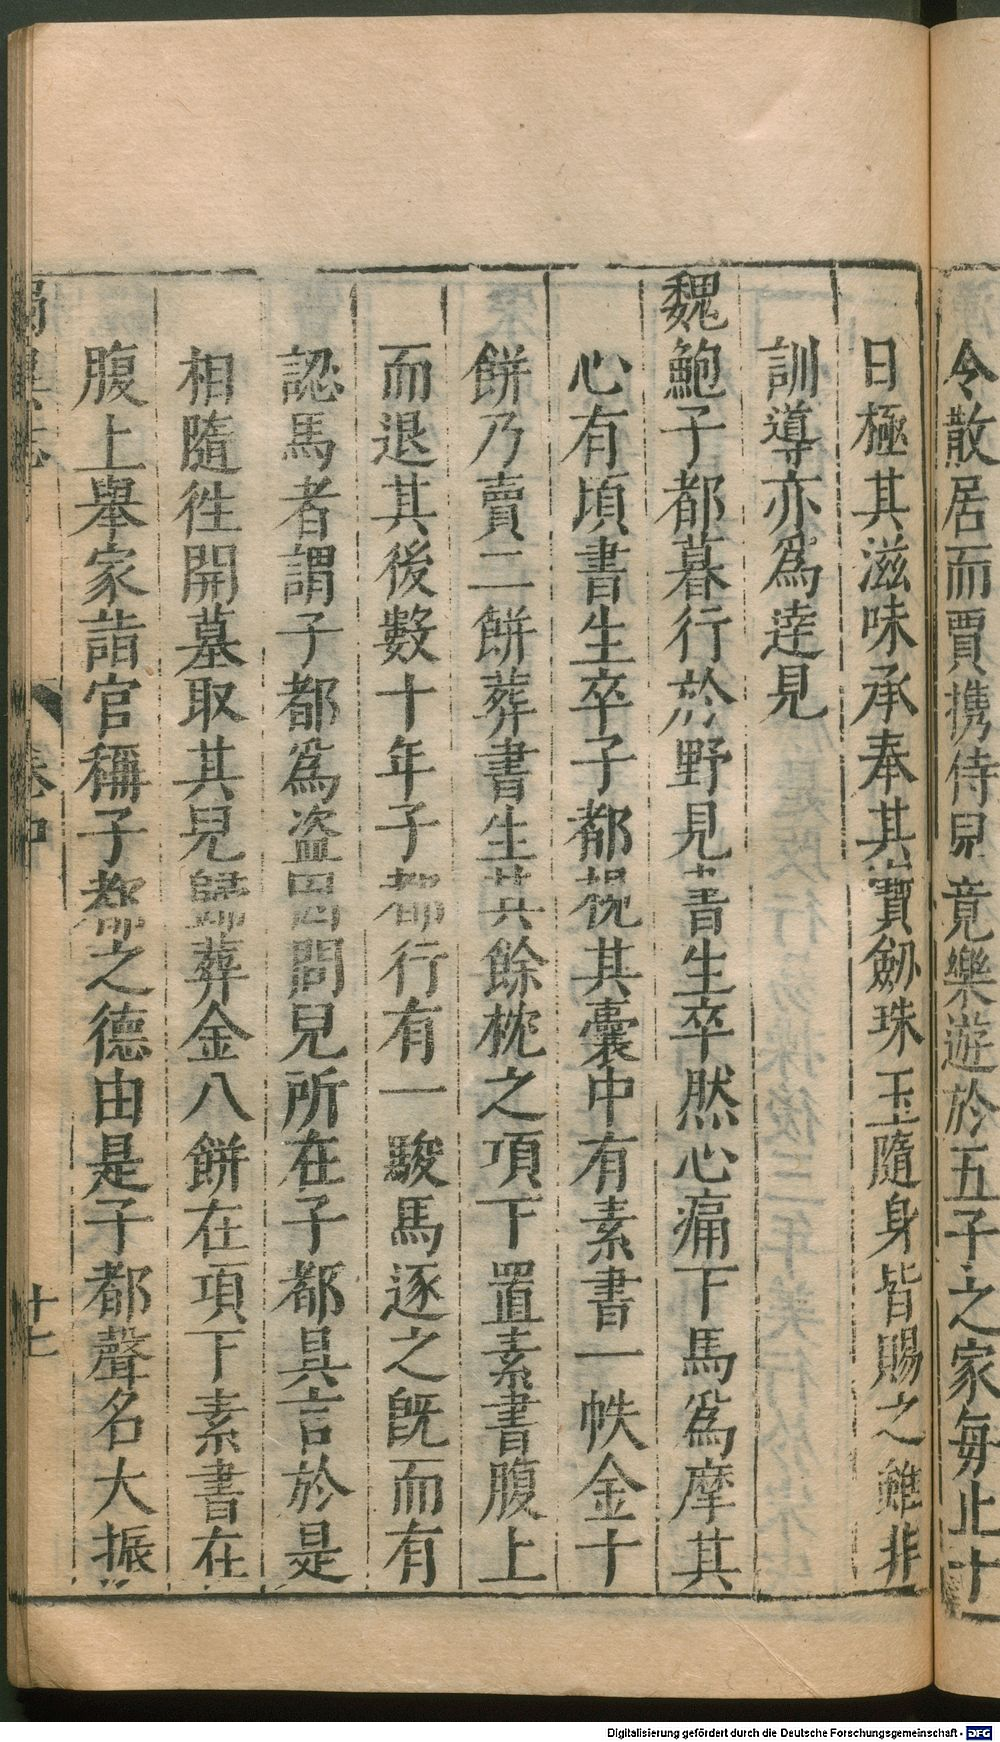 令散居而賈携侍兒竟樂遊於五子之家每止十
日極其滋味承奉其寶劒珠玉隨身皆賜之雖非
訓導亦爲達見
魏鮑子都暮行於野見書生卒然心痛下馬爲摩其
心有頃書生卒子都視其囊中有素書一帙金十
餅乃賣二餅葬書生其餘枕之項下置素書腹上
而退其後數十年子都行有一駿馬逐之旣而有
認馬者謂子都爲盗因問兒所在子都具言於是
相隨徃開墓取其兒歸葬金八餅在項下素書在
腹上舉家詣官稱子都之德由是子都聲名大振
獨異志
卷中
十七
Digitalisierung gefördert durch die Deutsche Forschungsgemeinschaft - DFG